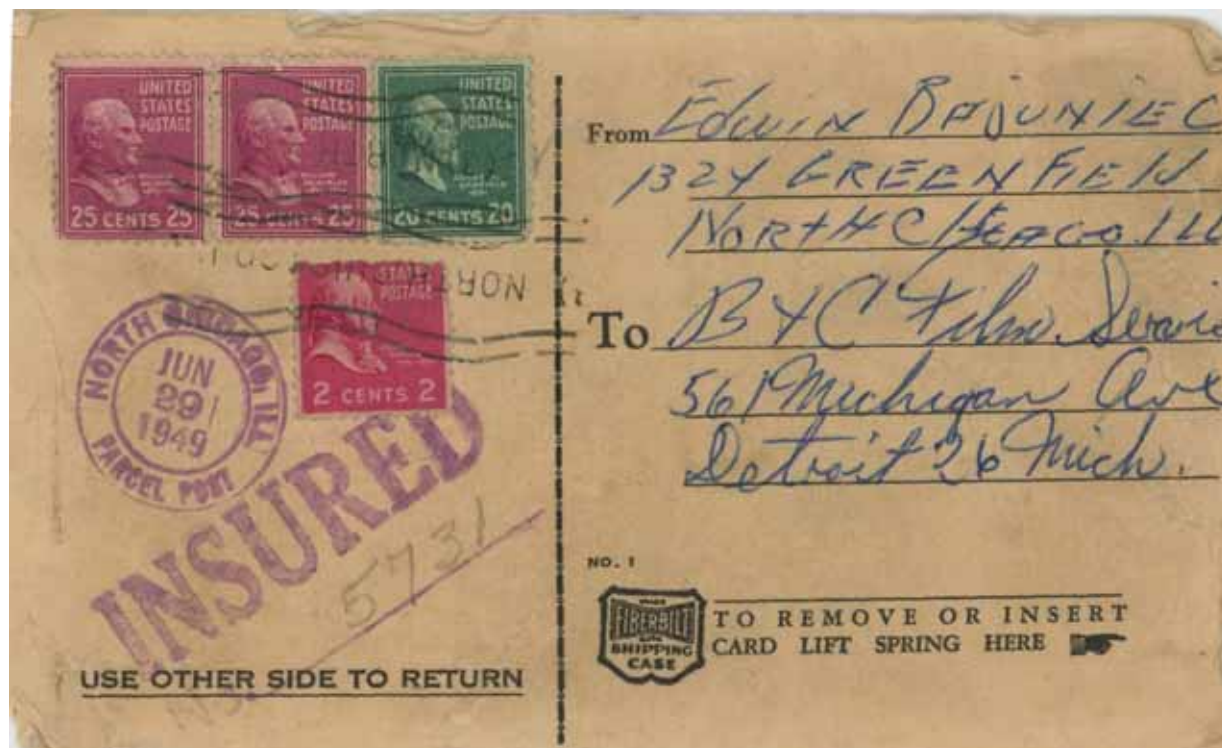 UNITED
STATES
POSTAGE
25 CENTS 25
UNITED
STATES
POSTAGE
25 CENTS 25
UNITED
STATES
POSTAGE
20 CENTS 20
NORTH
STATES
POSTAGE
2 CENTS 2
NORTH CHICAGO, ILL.
JUN
29
1949
PARCEL POST
INSURED
5731
USE OTHER SIDE TO RETURN
From Edwin BAJUNIEC
1324 GREENFIELD
NORTH CHICAGO. ILL
To B & C Film Servic
561 Michigan Ave
Detroit 26 Mich.
NO. 1
FIBERBILT
SHIPPING
CASE
TO REMOVE OR INSERT
CARD LIFT SPRING HERE